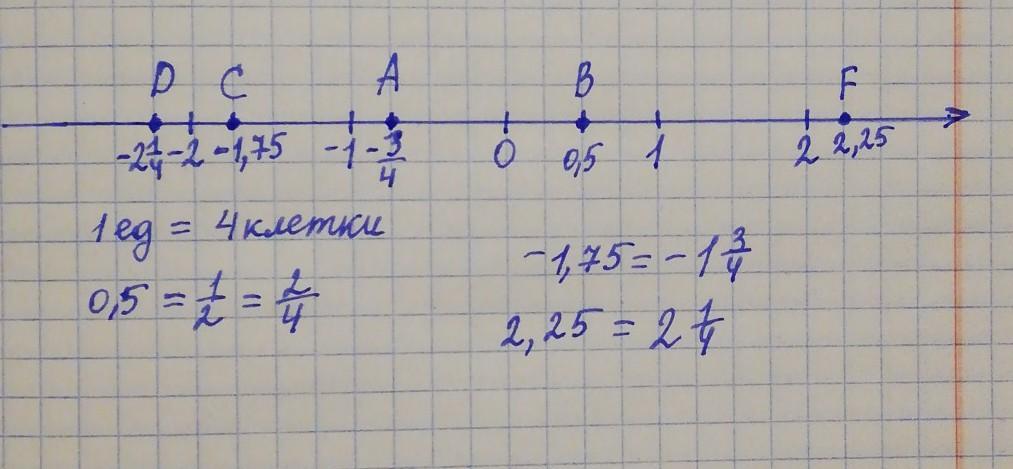 D C A B F
-2 1/4 -2 -1,75 -1 -3/4 0 0,5 1 2 2,25
1 ед = 4 клетки
-1,75 = -1 3/4
0,5 = 1/2 = 2/4
2,25 = 2 1/4